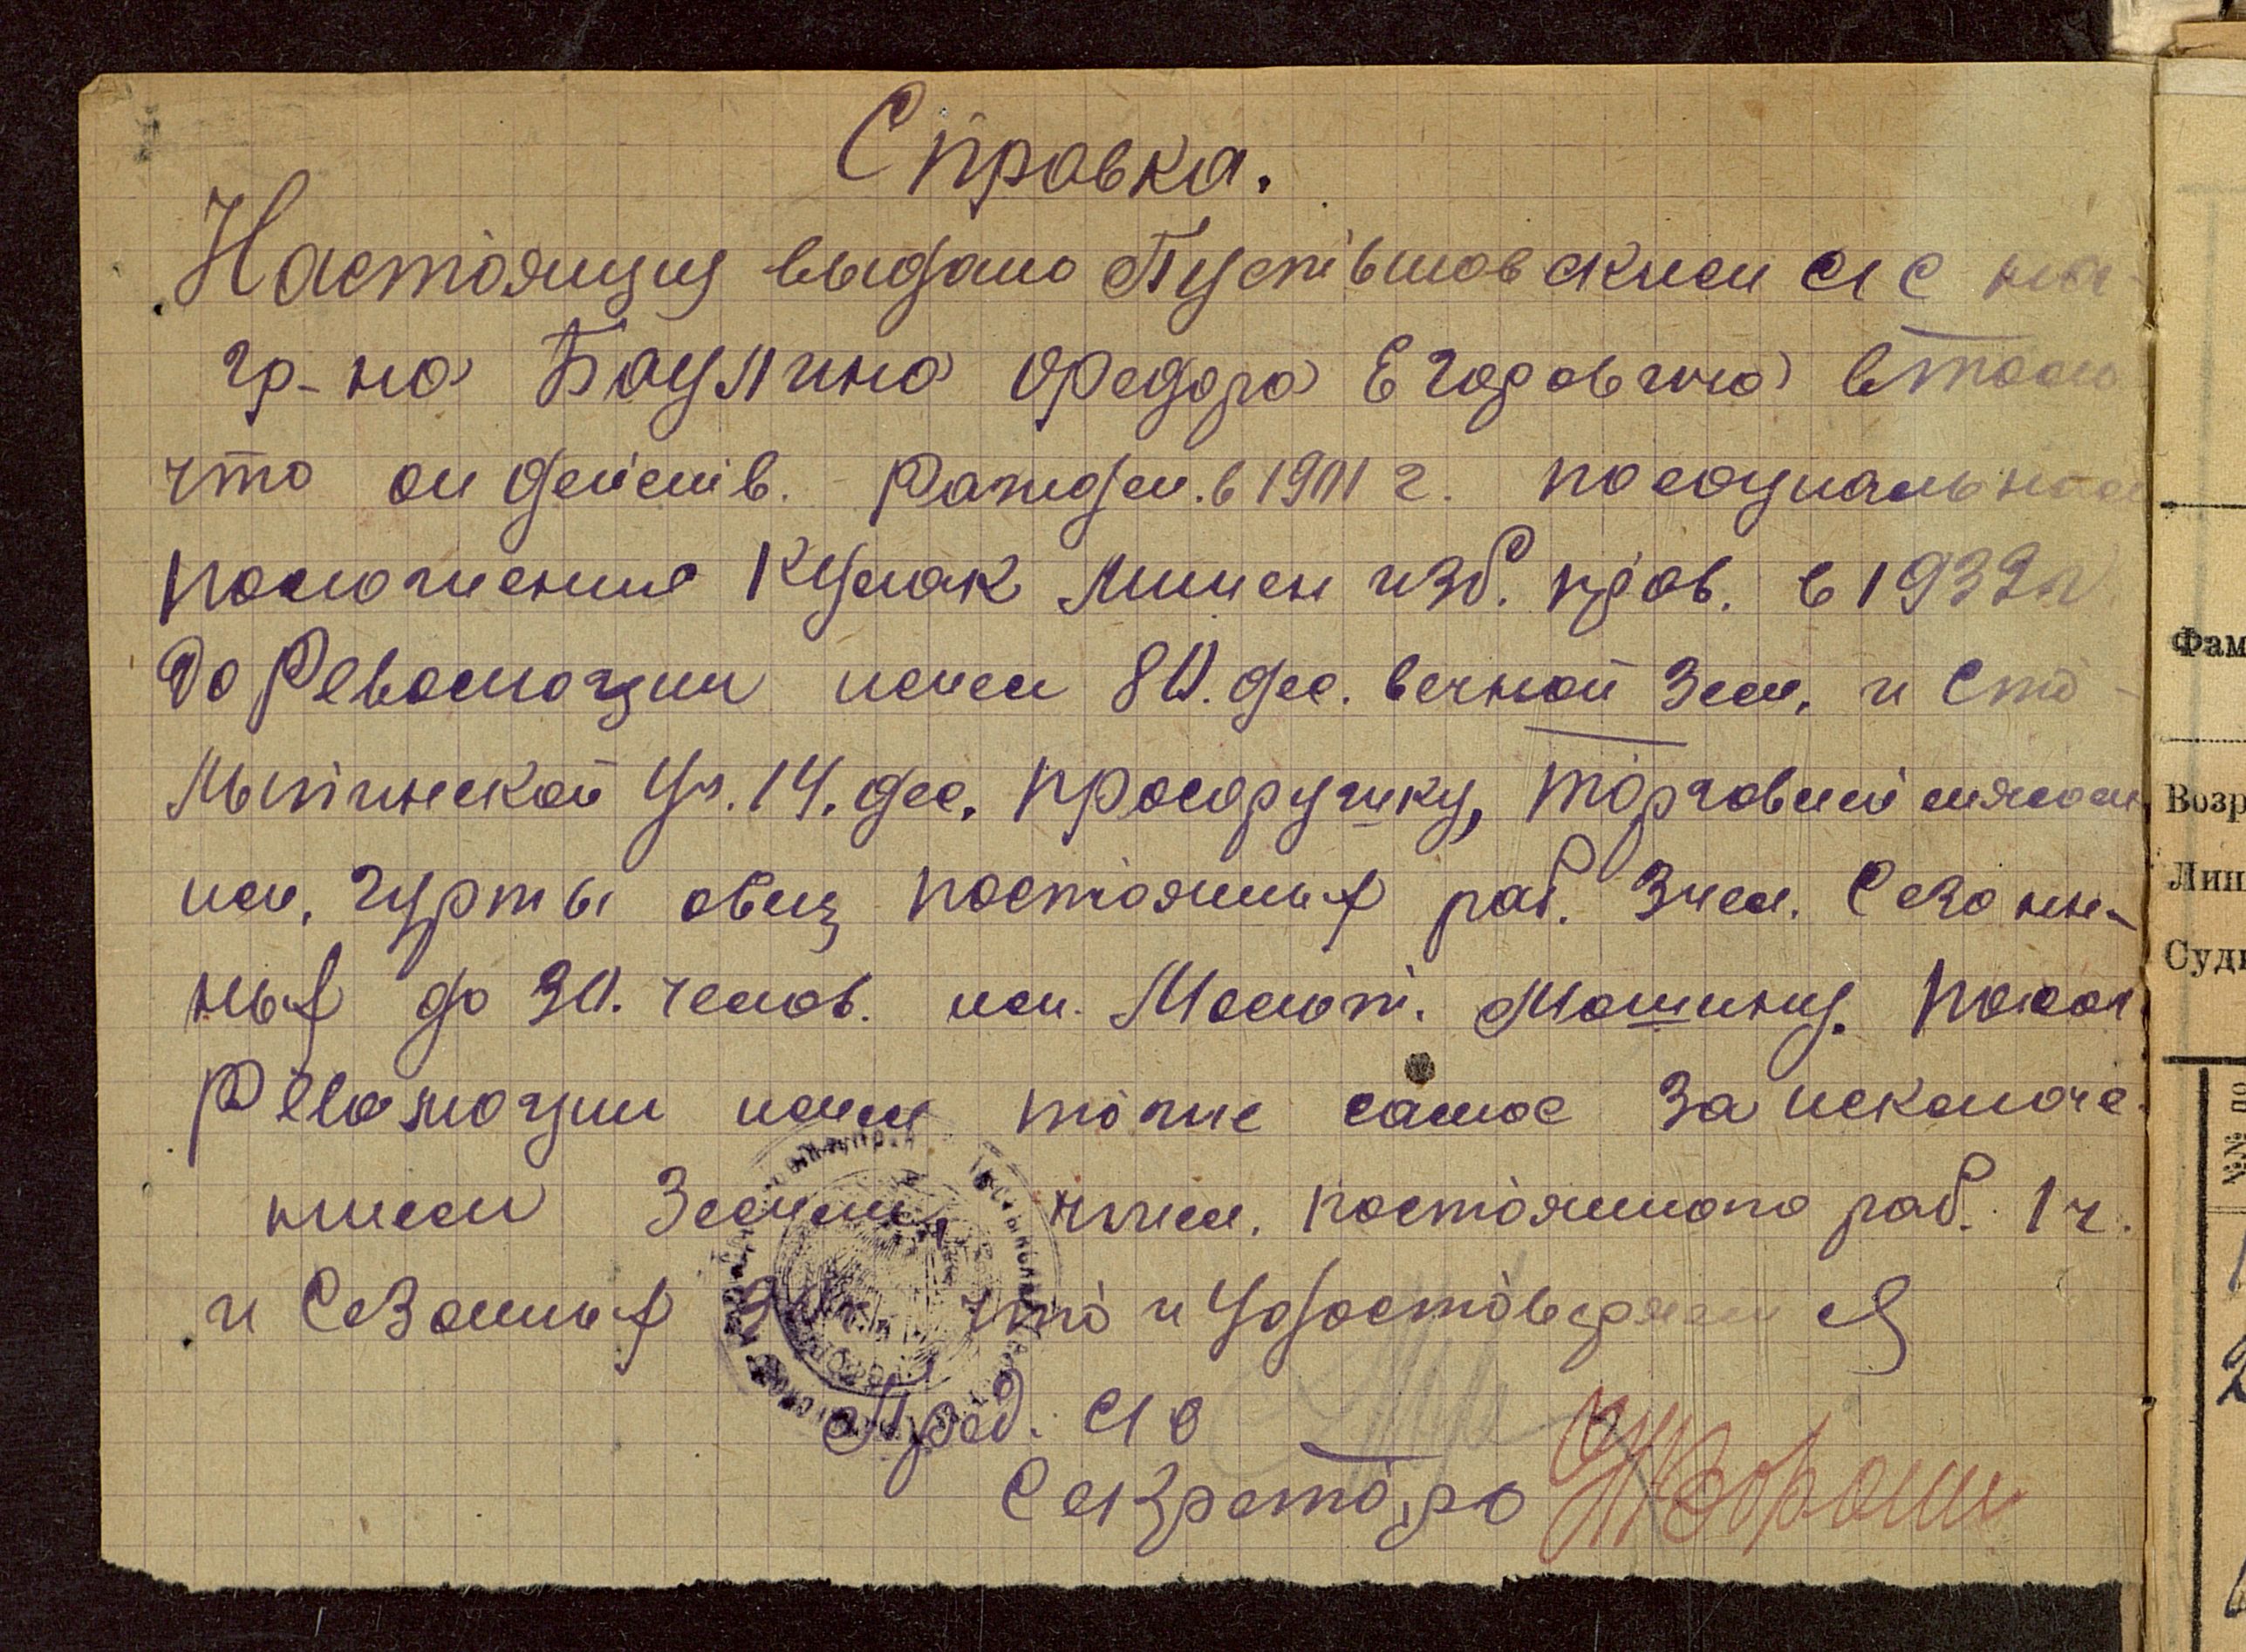 Справка.
Настоящия выдано Пустывловским с/с на
гр-на Баулина Федора Егоровича в том
что он действ. Рожден. в 1901 г. по социально
положения кулак лишен изб. прав. в 193
До Революции имел 80. дес. вечной зем. и Сто
лыпинской уч. 14. дес. просорушку, торговлей мясом
им. гурты овец постоянных раб. 3 чел. Сезон-
ных до 30. челов. им. Молот. Машину. После
Революции имел тоже самое за исключе-
нием Земли, имел. постоянного раб. 1 ч.
и Сезонных что и удостоверяется
Пред. с/с
Секретарь
Фам
Возр
Лин
Суди
№№ по